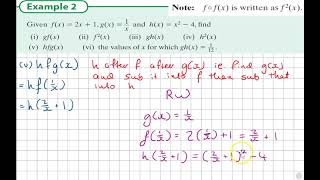 Example 2
Note: f∘f(x) is written as f²(x).
Given f(x) = 2x + 1, g(x) = 1/x and h(x) = x² − 4, find
(i) gf(x) (ii) f²(x) (iii) gh(x) (iv)
(v) hfg(x) (vi) the values of x for which gh(x) = 1/12.
(v) h f g(x) h after f after g(x) ie. find g(x)
and sub it into f then sub that
into h
= h f(1/x)
= h(2/x + 1)
RW
g(x) = 1/x
f(1/x) = 2(1/x) + 1 = 2/x + 1
h(2/x + 1) = (2/x + 1)² − 4